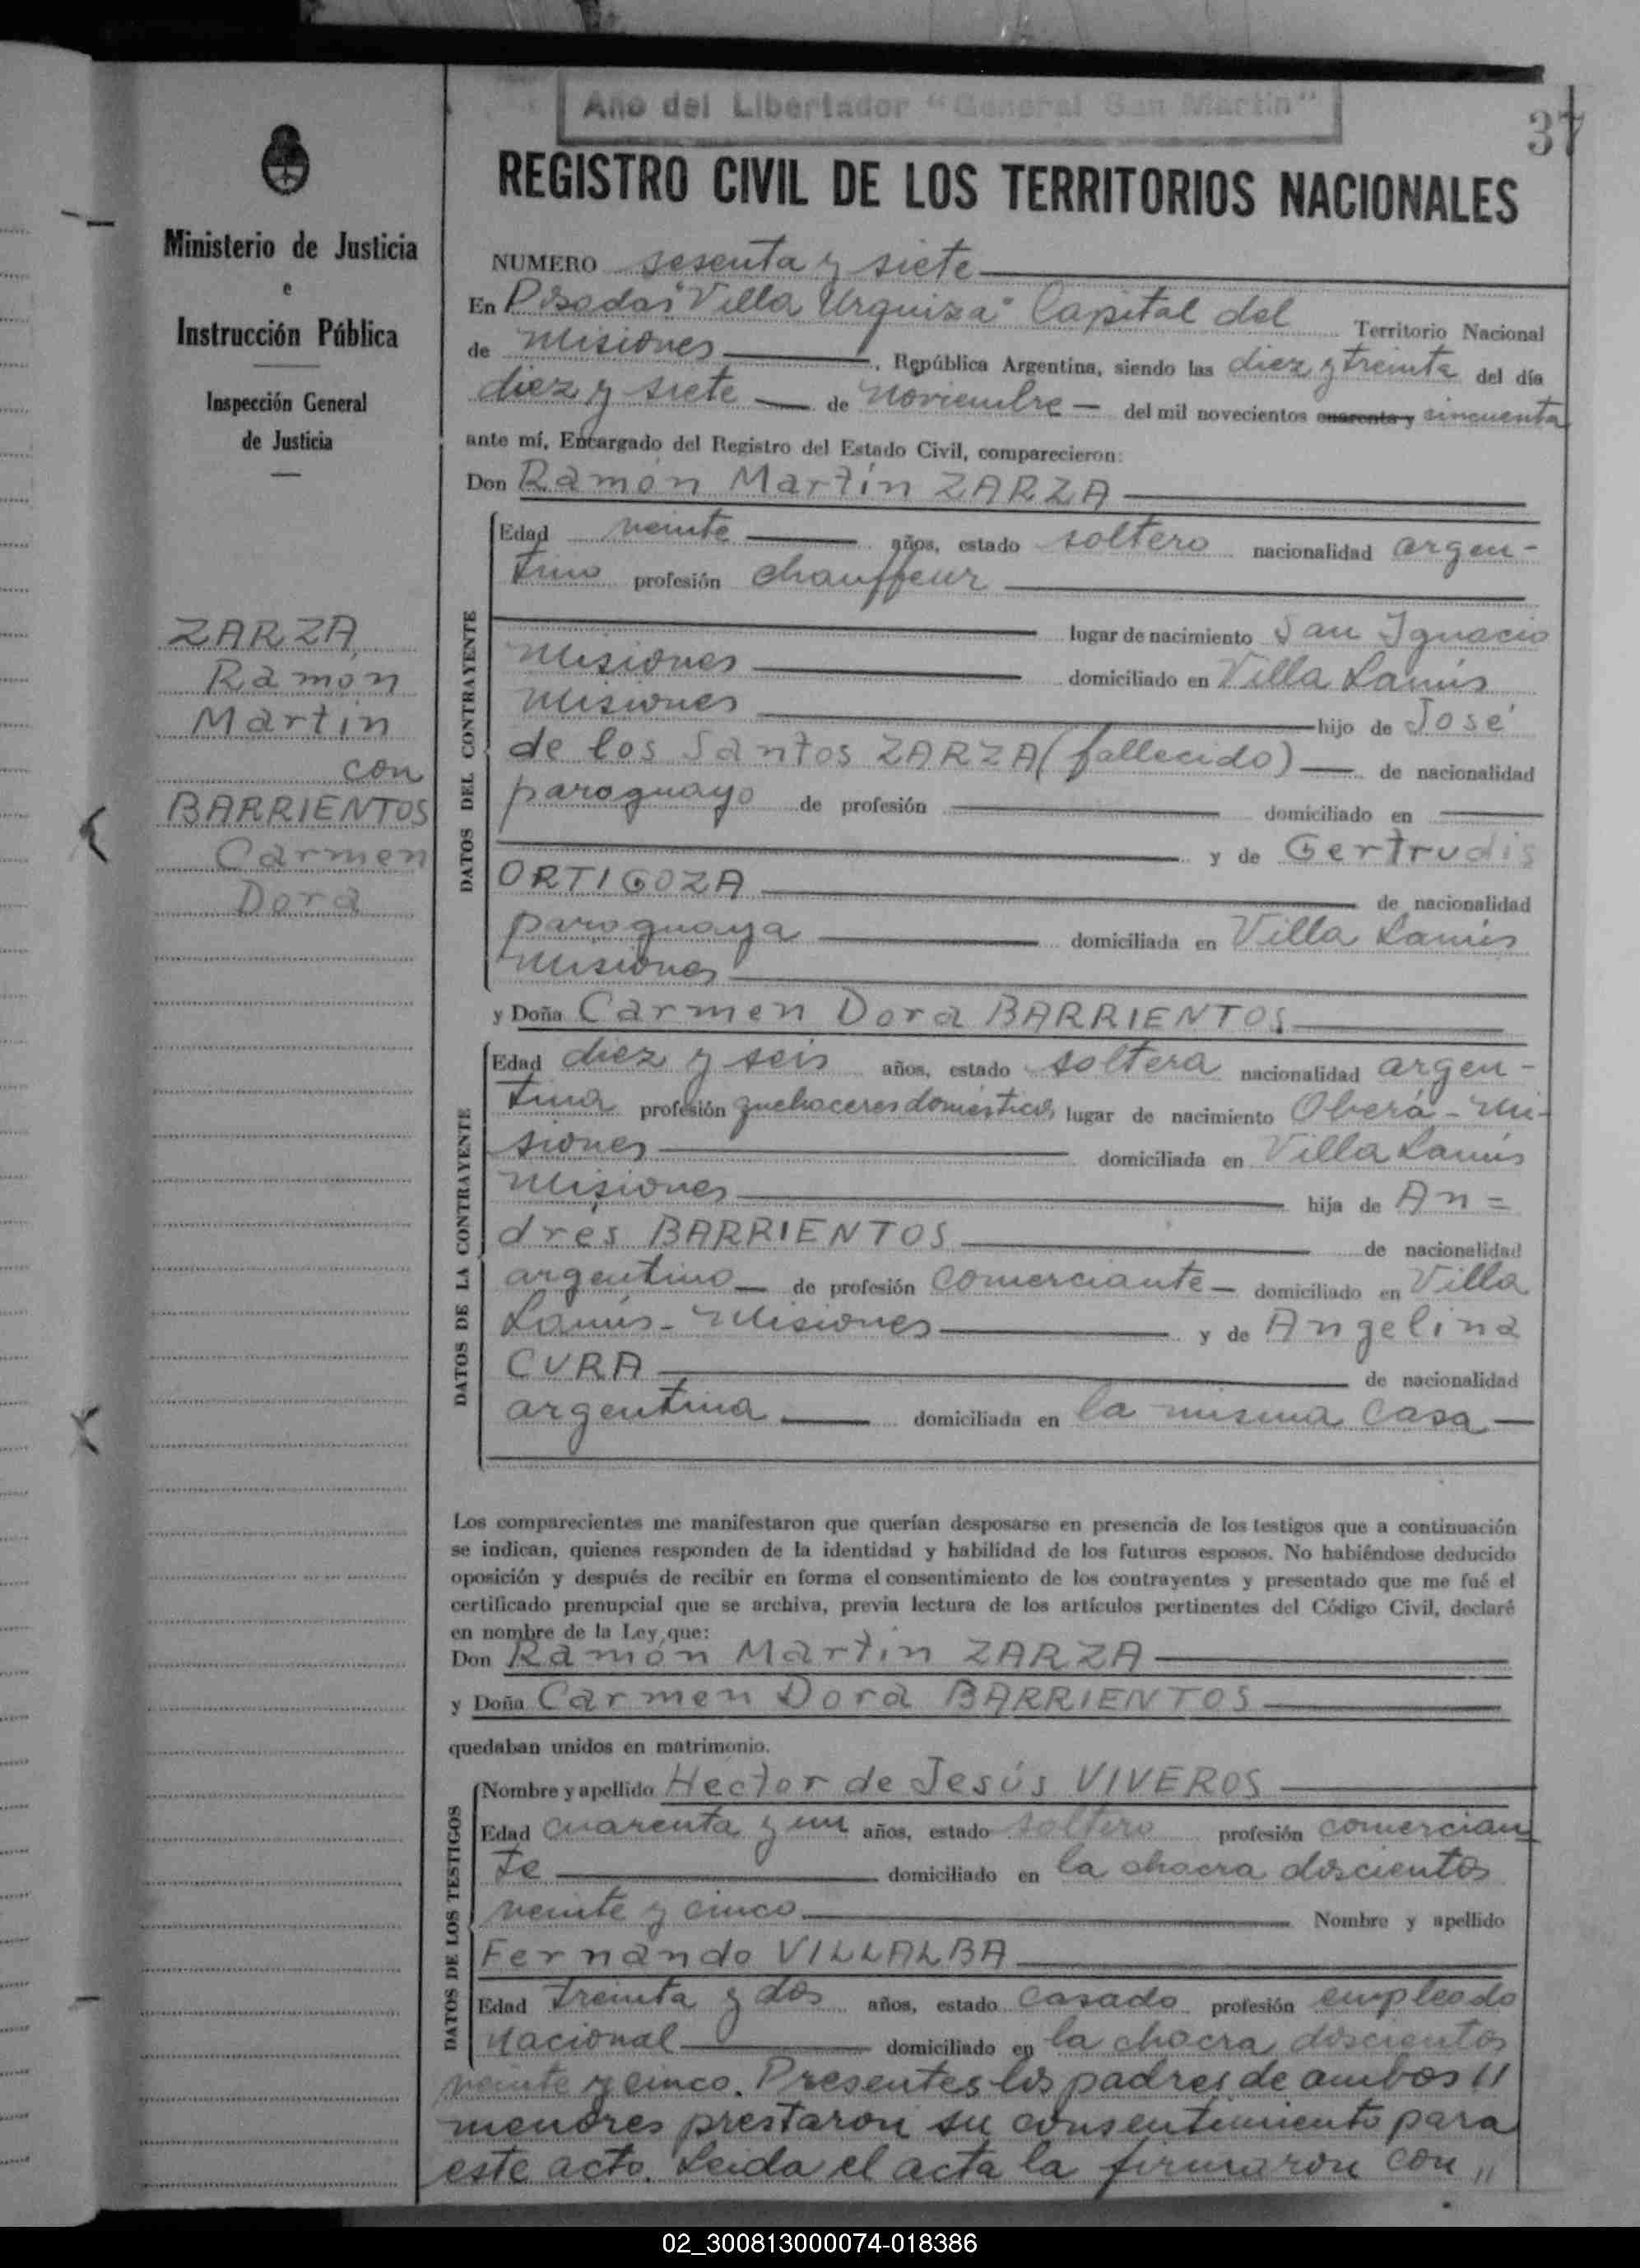 Año del Libertador "General San Martín"
37
REGISTRO CIVIL DE LOS TERRITORIOS NACIONALES
Ministerio de Justicia
e
Instrucción Pública
Inspección General
de Justicia
ZARZA
Ramón
Martín
con
BARRIENTOS
Carmen
Dora
NUMERO sesenta y siete
En Posadas "Villa Urquiza" Capital del Territorio Nacional
de Misiones, República Argentina, siendo las diez y treinta del día
diez y siete de Noviembre del mil novecientos cuarenta y cincuenta
ante mí, Encargado del Registro del Estado Civil, comparecieron:
Don Ramón Martín ZARZA
DATOS DEL CONTRAYENTE
Edad veinte años, estado soltero nacionalidad argen-
tino profesión chauffeur
lugar de nacimiento San Ignacio
Misiones domiciliado en Villa Lanús
Misiones hijo de José
de los Santos ZARZA (fallecido) de nacionalidad
paraguayo de profesión domiciliado en
y de Gertrudis
ORTIGOZA de nacionalidad
paraguaya domiciliada en Villa Lanús
Misiones
y Doña Carmen Dora BARRIENTOS
DATOS DE LA CONTRAYENTE
Edad diez y seis años, estado soltera nacionalidad argen-
tina profesión quehaceres domésticos lugar de nacimiento Oberá - Mi-
siones domiciliada en Villa Lanús
Misiones hija de An=
drés BARRIENTOS de nacionalidad
argentino de profesión comerciante domiciliado en Villa
Lanús - Misiones y de Angelina
CURA de nacionalidad
argentina domiciliada en la misma casa
Los comparecientes me manifestaron que querían desposarse en presencia de los testigos que a continuación
se indican, quienes responden de la identidad y habilidad de los futuros esposos. No habiéndose deducido
oposición y después de recibir en forma el consentimiento de los contrayentes y presentado que me fué el
certificado prenupcial que se archiva, previa lectura de los artículos pertinentes del Código Civil, declaré
en nombre de la Ley que:
Don Ramón Martín ZARZA
y Doña Carmen Dora BARRIENTOS
quedaban unidos en matrimonio.
DATOS DE LOS TESTIGOS
Nombre y apellido Hector de Jesús VIVEROS
Edad cuarenta y un años, estado soltero profesión comercian
te domiciliado en la chacra doscientos
veinte y cinco Nombre y apellido
Fernando VILLALBA
Edad treinta y dos años, estado casado profesión empleado
nacional domiciliado en la chacra doscientos
veinte y cinco. Presentes los padres de ambos //
menores prestaron su consentimiento para
este acto. Leida el acta la firmaron con //
02_300813000074-018386